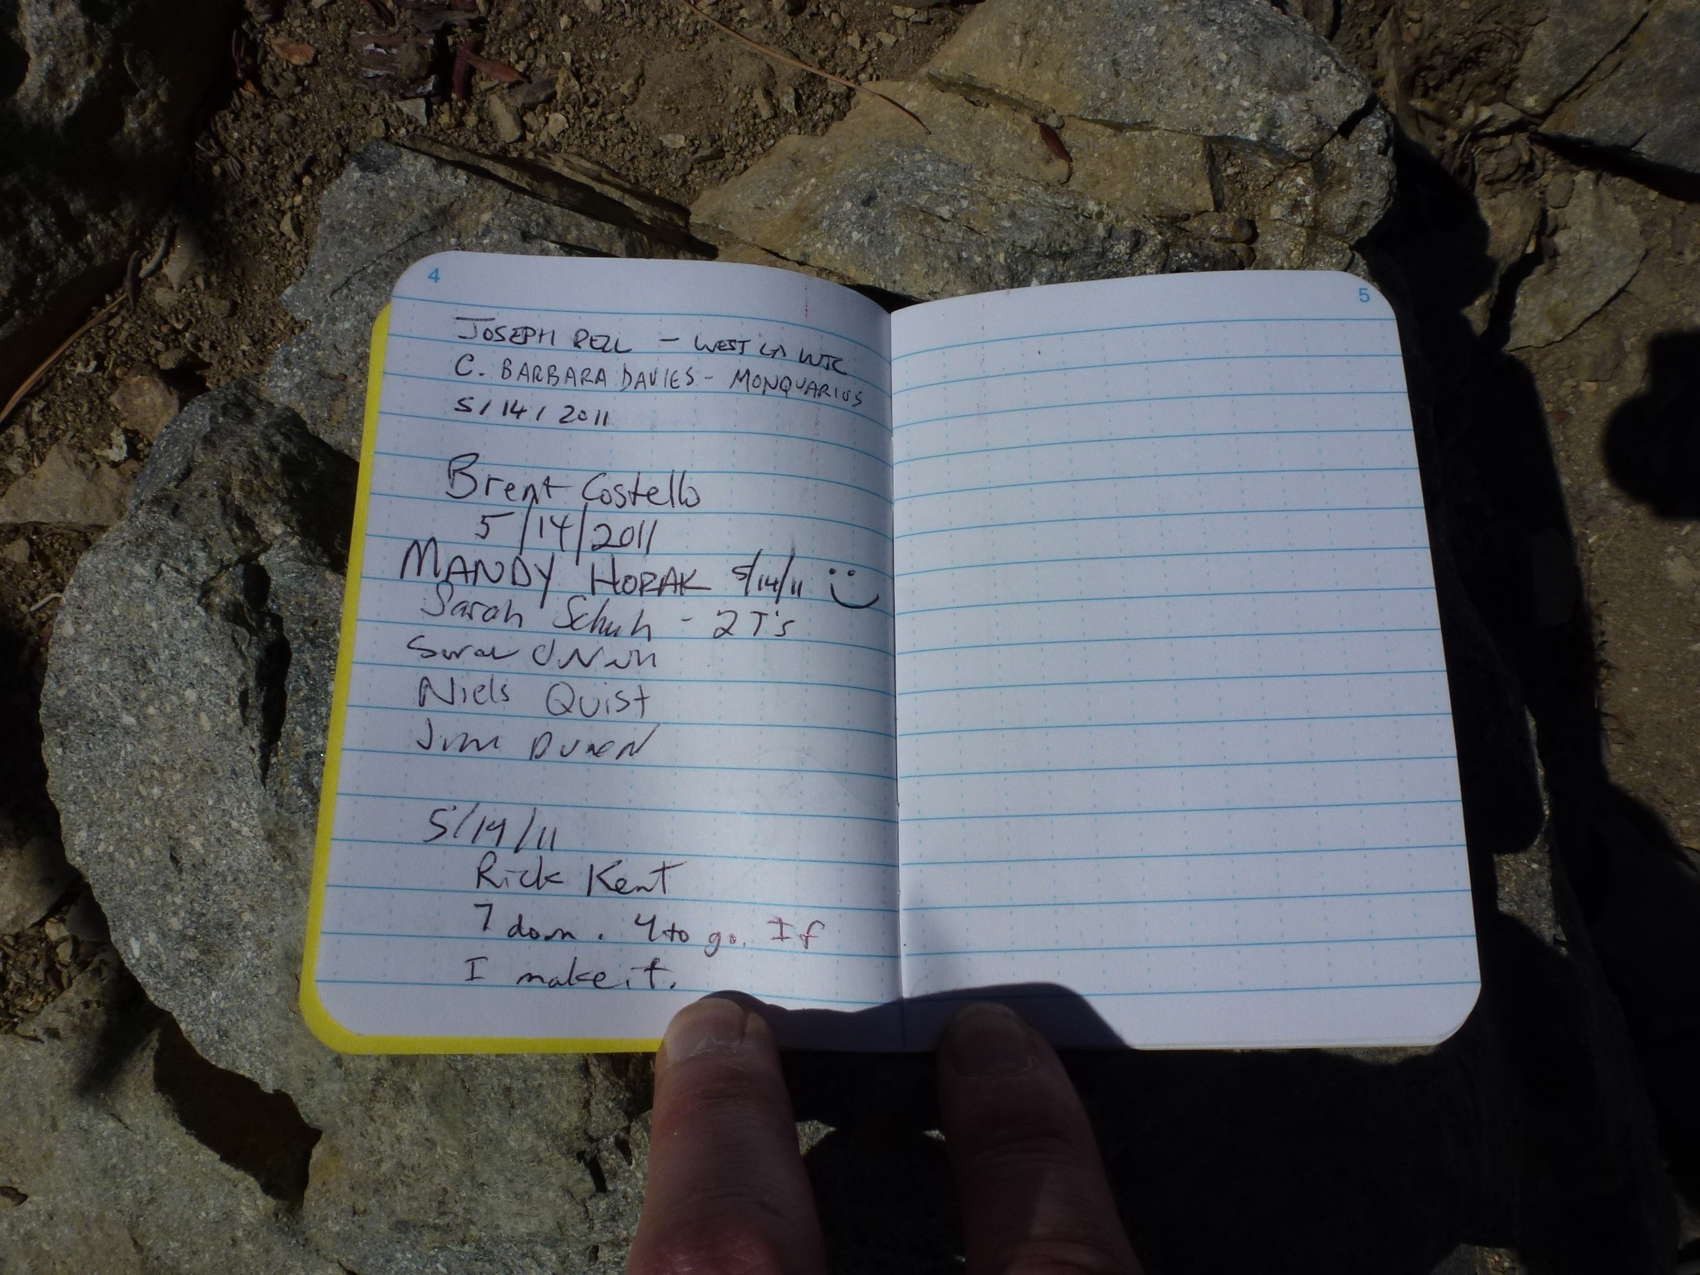 4
JOSEPH BELL - WEST LA WTC
C. BARBARA DAVIES - MONQUARIUS
5/14/2011
Brent Costello
5/14/2011
MANDY HORAK 5/14/11
Sarah Schuh - 2 T's
Niels Quist
5/14/11
Rick Kent
7 down. 4 to go. If
I make it.
5